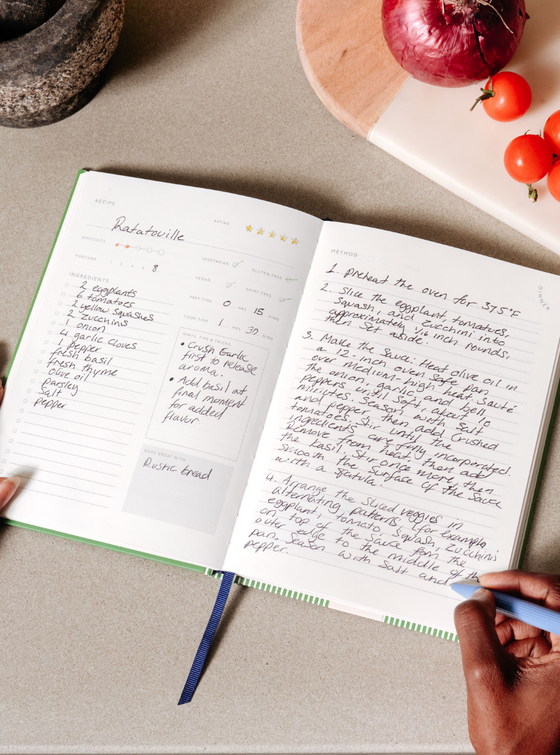 RECIPE
Ratatouille
RATING
DIFFICULTY
PORTIONS
8
VEGETARIAN
GLUTEN-FREE
VEGAN
DAIRY-FREE
PREP TIME 0 HRS 15 MINS
COOK TIME 1 HRS 30 MINS
INGREDIENTS
2 eggplants
6 tomatoes
2 yellow squashes
2 zucchinis
1 onion
4 garlic cloves
1 pepper
fresh basil
fresh thyme
olive oil
parsley
salt
pepper
• Crush Garlic
first to release
aroma.
• Add basil at
final moment
for added
flavor
GOES GREAT WITH
Rustic bread
METHOD
DINNER
1. Preheat the oven for 375°F
2. Slice the eggplant, tomatoes,
Squash, and zucchini into
approximately 1/16 inch rounds,
then set aside.
3. Make the Sauce: Heat olive oil in
a 12-inch oven safe pan
over medium-high heat. Sauté
the onion, garlic, and bell
peppers until soft, about 10
minutes. Season with Salt
and pepper, then add crushed
tomatoes. Stir until the
ingredients are fully incorporated.
Remove from heat, then add
the basil. Stir once more, then
Smooth the surface of the Sauce
with a spatula.
4. Arrange the Sliced veggies in
alternating patterns, (for example,
eggplant, tomato, Squash, Zucchini)
on top of the Sauce from the
outer edge to the middle of the
pan. Season with Salt and
pepper.